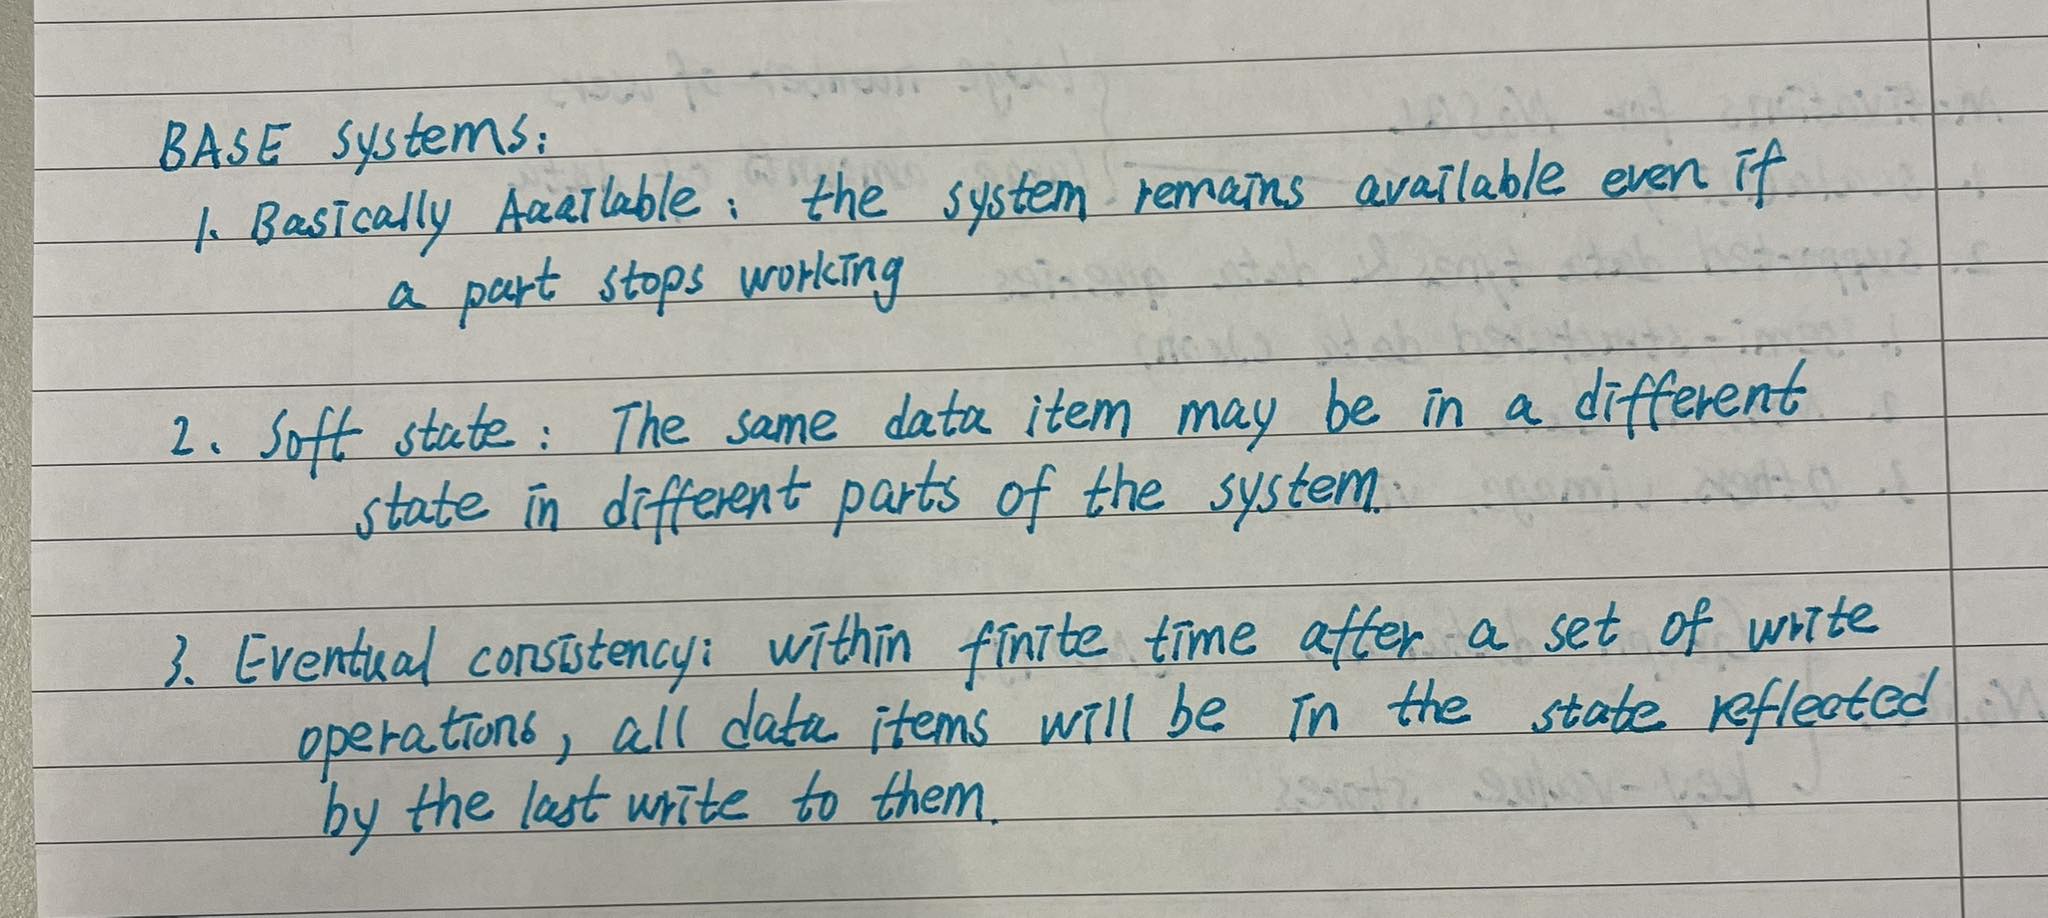 BASE systems:
1. Basically Aaailable: the system remains available even if
a part stops working
2. Soft state: The same data item may be in a different
state in different parts of the system.
3. Eventual consistency: within finite time after a set of write
operations, all data items will be in the state reflected
by the last write to them.